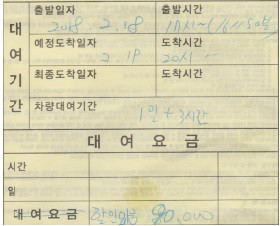 출발일자 출발시간
2018 2.18 17시~
대여기간
예정도착일자 도착시간
2.19 20시
최종도착일자 도착시간
차량대여기간
1일 + 3시간
대 여 요 금
시간
일
대 여 요 금 할인있음 90,000